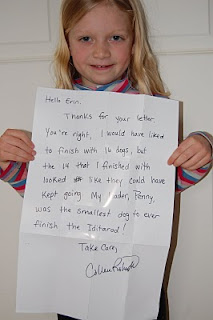 Hello Erin,
Thanks for your letter.
You're right, I would have liked
to finish with 16 dogs, but
the 14 that I finished with
looked like they could have
kept going. My leader, Penny,
was the smallest dog to ever
finish the Iditarod!
Take Care,